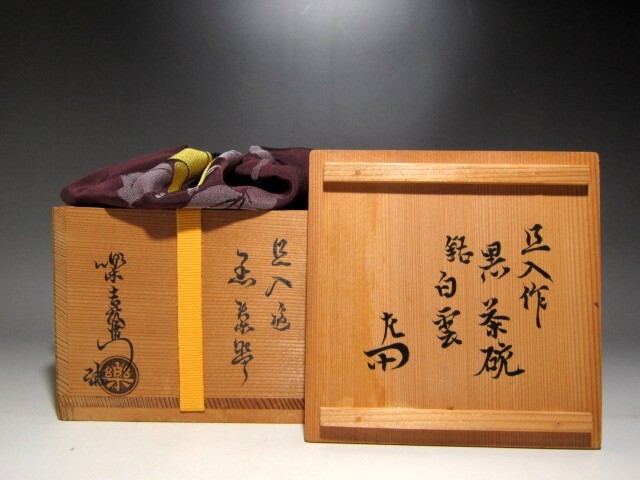 旦入作
黒茶碗
銘白雲
左
旦入造
黒茶碗
樂吉左衛門
樂